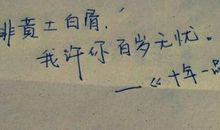 非黄土白骨，
我许你百岁无忧。
——《十年一品